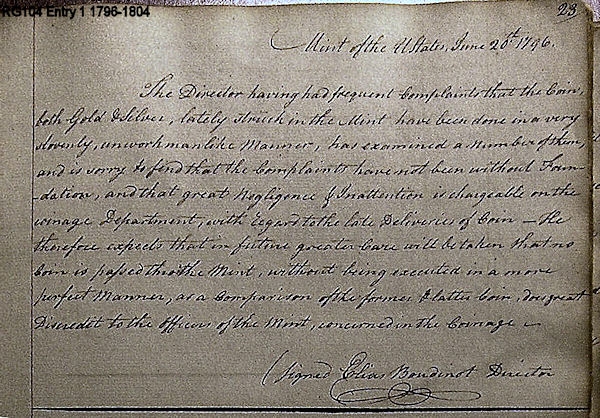 RG104 Entry 1 1796-1804
23
Mint of the U States, June 20th 1796.
The Director having had frequent Complaints that the Coin,
both Gold & Silver, lately struck in the Mint have been done in a very
slovenly, unworkmanlike Manner, has examined a Number of them,
and is sorry to find that the Complaints have not been without Foun-
dation, and that great Negligence & Inattention is chargeable on the
coinage Department, with regard to the late Deliveries of Coin — He
therefore expects that in future greater Care will be taken that no
Coin is passed thro the Mint, without being executed in a more
perfect Manner, as a Comparison of the former & latter Coin, does great
Discredit to the Officers of the Mint, concerned in the Coinage —
(signed Elias Boudinot Director